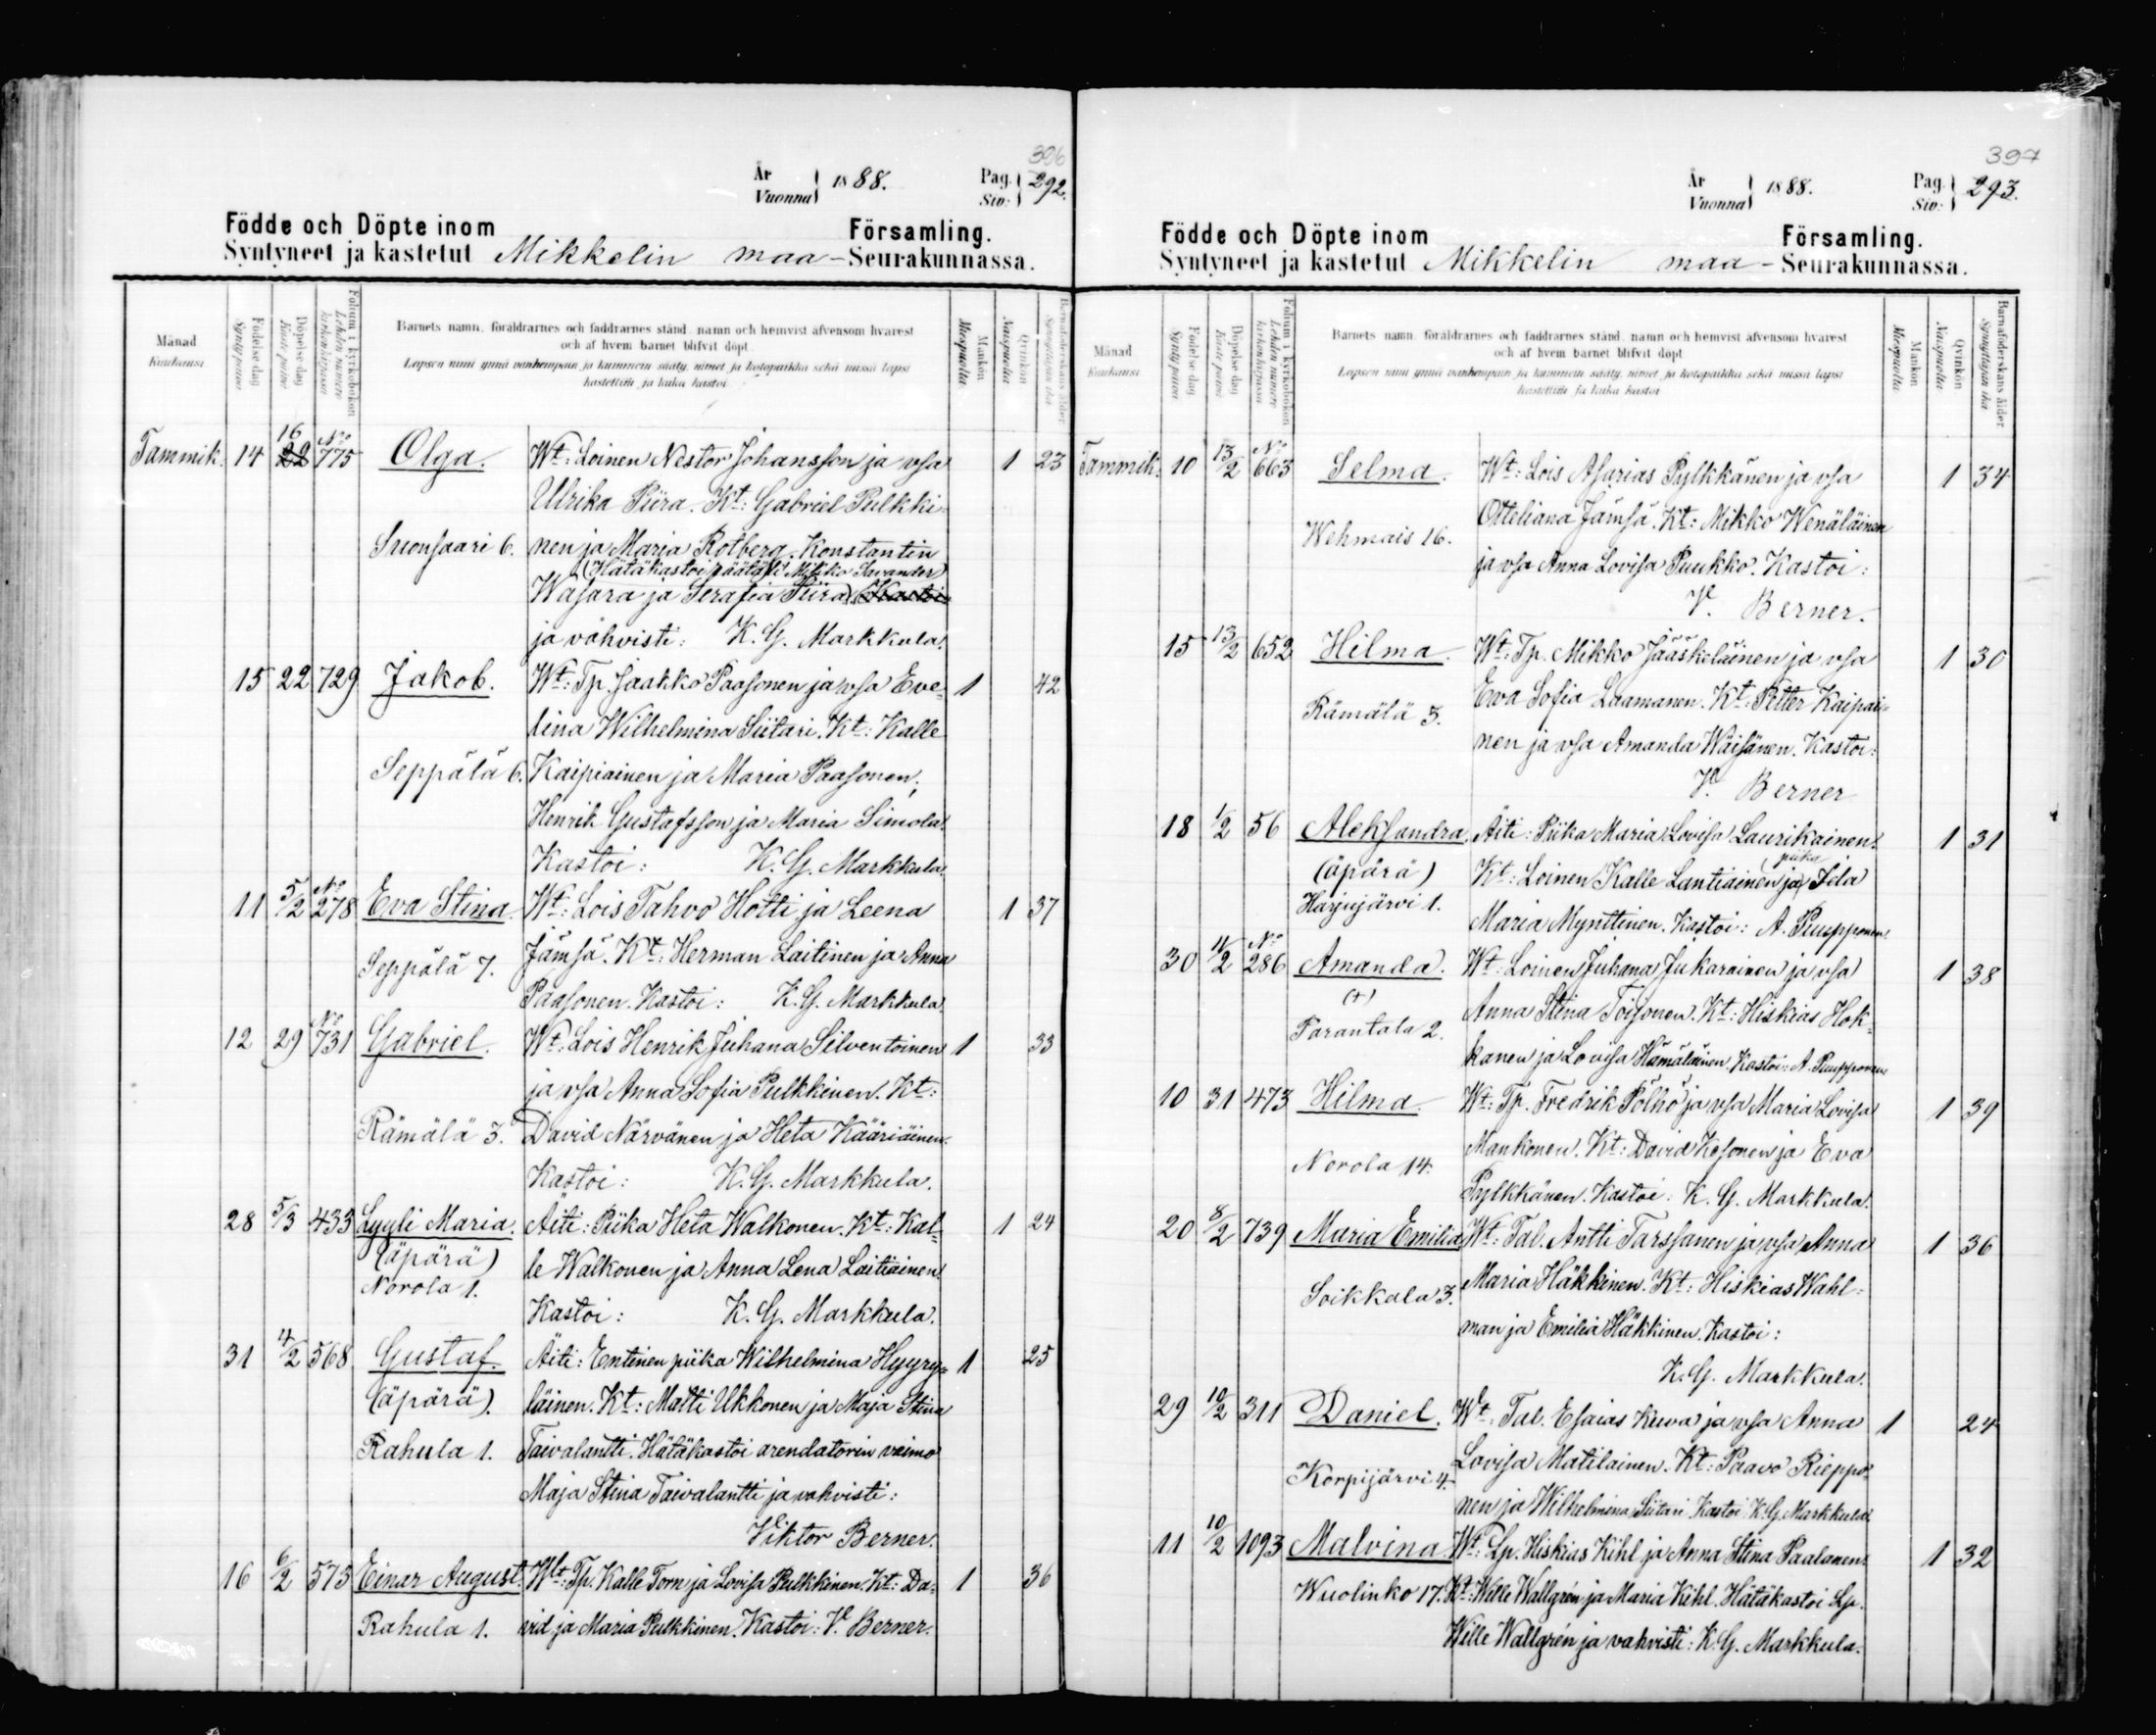 396
År
Vuonna
1888.
Pag.
Siv:
292.
Födde och Döpte inom Församling.
Syntyneet ja kastetut Mikkelin maa-Seurakunnassa.
Månad
Kuukausi
Födelse dag
Synty päivä
Döpelse dag
Kaste päivä
Folium i kyrkobokon
Lehden numero kirkonkirjassa
Barnets namn, föräldrarnes och faddrarnes stånd, namn och hemvist äfvensom hvarest
och af hvem barnet blifvit döpt
Lapsen nimi ynnä vanhempain ja kummein sääty, nimet ja kotopaikka sekä missä lapsi
kastettiin ja kuka kastoi
Mankön
Miespuolta
Qvinkön
Naispuolta
Barnaföderskans ålder
Synnyttäjän ikä
Tammik. 14 16 22 No 775 Olga. Wt: Loinen Nestor Johansson ja vsa 1 23
Ulrika Piira. Kt: Gabriel Pulkki-
Suonsaari 6. nen ja Maria Rotberg. Konstantin
(Hätäkastoi räätäli Mikko Savander)
Wasara ja Serafia Piira) (Kastoi
ja vahvisti: K. G. Markkula.
15 22 729 Jakob. Wt: Tp. Jaakko Paasonen ja vsa Eve- 1 42
lina Wilhelmina Siitari. Kt: Kalle
Seppälä 6. Kaipiainen ja Maria Paasonen;
Henrik Gustafsson ja Maria Simola.
Kastoi: K. G. Markkula.
11 5/2 No 278 Eva Stina. Wt: Lois Tahvo Hotti ja Leena 1 37
Seppälä 7. Jämsä. Kt: Herman Laitinen ja Anna
Paasonen. Kastoi: K. G. Markkula.
12 29 No 731 Gabriel. Wt: Lois Henrik Juhana Silventoinen 1 33
ja vsa Anna Sofia Pulkkinen. Kt:
Rämälä 3. David Närvänen ja Heta Kääriäinen.
Kastoi: K. G. Markkula.
28 5/3 433 Lyyli Maria. Äiti: Piika Heta Walkonen. Kt: Kal- 1 24
(äpärä) le Walkonen ja Anna Lena Laitiainen.
Norola 1.
Kastoi: K. G. Markkula.
31 4/2 568 Gustaf. Äiti: Entinen piika Wilhelmina Hyyry- 1 25
(äpärä). läinen. Kt: Matti Ukkonen ja Maja Stina
Rahula 1. Taivalantti. Hätäkastoi arendatorin vaimo
Maja Stina Taivalantti ja vahvisti:
Viktor Berner.
16 6/2 573 Einar August. Wt: Tp. Kalle Torn ja Lovisa Pulkkinen. Kt: Da- 1 36
Rahula 1. vid ja Maria Pulkkinen. Kastoi: V. Berner.
397
År
Vuonna
1888.
Pag.
Siv:
293.
Födde och Döpte inom Församling.
Syntyneet ja kastetut Mikkelin maa-Seurakunnassa.
Månad
Kuukausi
Födelse dag
Synty päivä
Döpelse dag
Kaste päivä
Folium i kyrkobokon
Lehden numero kirkonkirjassa
Barnets namn, föräldrarnes och faddrarnes stånd, namn och hemvist äfvensom hvarest
och af hvem barnet blifvit döpt
Lapsen nimi ynnä vanhempain ja kummein sääty, nimet ja kotopaikka sekä missä lapsi
kastettiin ja kuka kastoi
Mankön
Miespuolta
Qvinkön
Naispuolta
Barnaföderskans ålder
Synnyttäjän ikä
Tammik. 10 13/2 No 663 Selma. Wt: Lois Asarias Pylkkänen ja vsa 1 34
Otteliana Jämsä. Kt: Mikko Wenäläinen
Wehmais 16. ja vsa Anna Lovisa Puukko. Kastoi:
V. Berner.
15 13/2 652 Hilma. Wt: Tp. Mikko Jääskeläinen ja vsa 1 30
Eva Sofia Laamanen. Kt: Petter Kaipai-
Rämälä 3. nen ja vsa Amanda Wäisänen. Kastoi:
V. Berner
18 1/2 56 Aleksandra. Äiti: Piika Maria Lovisa Laurikainen. 1 31
(äpärä) Kt: Loinen Kalle Lantiainen ja piika Ida
Harjujärvi 1. Maria Mynttinen. Kastoi: A. Puupponen.
30 11/2 No 286 Amanda. Wt: Loinen Juhana Jukarainen ja vsa 1 38
(+) Anna Stina Toijonen. Kt: Hiskias Hok-
Parantala 2. kanen ja Lovisa Hämäläinen. Kastoi: A. Puupponen
10 31 473 Hilma. Wt: Tp. Fredrik Pölhö ja vsa Maria Lovisa 1 39
Mankonen. Kt: David Kosonen ja Eva
Norola 14. Pylkkänen. Kastoi: K. G. Markkula.
20 8/2 739 Maria Emilia Wt: Tal. Antti Tarssanen ja vsa Anna 1 36
Soikkala 3. Maria Häkkinen. Kt: Hiskias Wahl-
man ja Emilia Häkkinen. Kastoi:
K. G. Markkula.
29 10/2 311 Daniel. Wt: Tal. Esaias Kuva ja vsa Anna 1 24
Lovisa Matilainen. Kt: Paavo Rieppo-
Korpijärvi 4. nen ja Wilhelmina Siitari. Kastoi K. G. Markkula
11 10/2 1093 Malvina. Wt: Lp. Hiskias Kihl ja Anna Stina Paalanen. 1 32
Wuolinko 17. Kt: Wille Wallgrén ja Maria Kihl. Hätäkastoi Lp.
Wille Wallgrén ja vahvisti: K. G. Markkula.